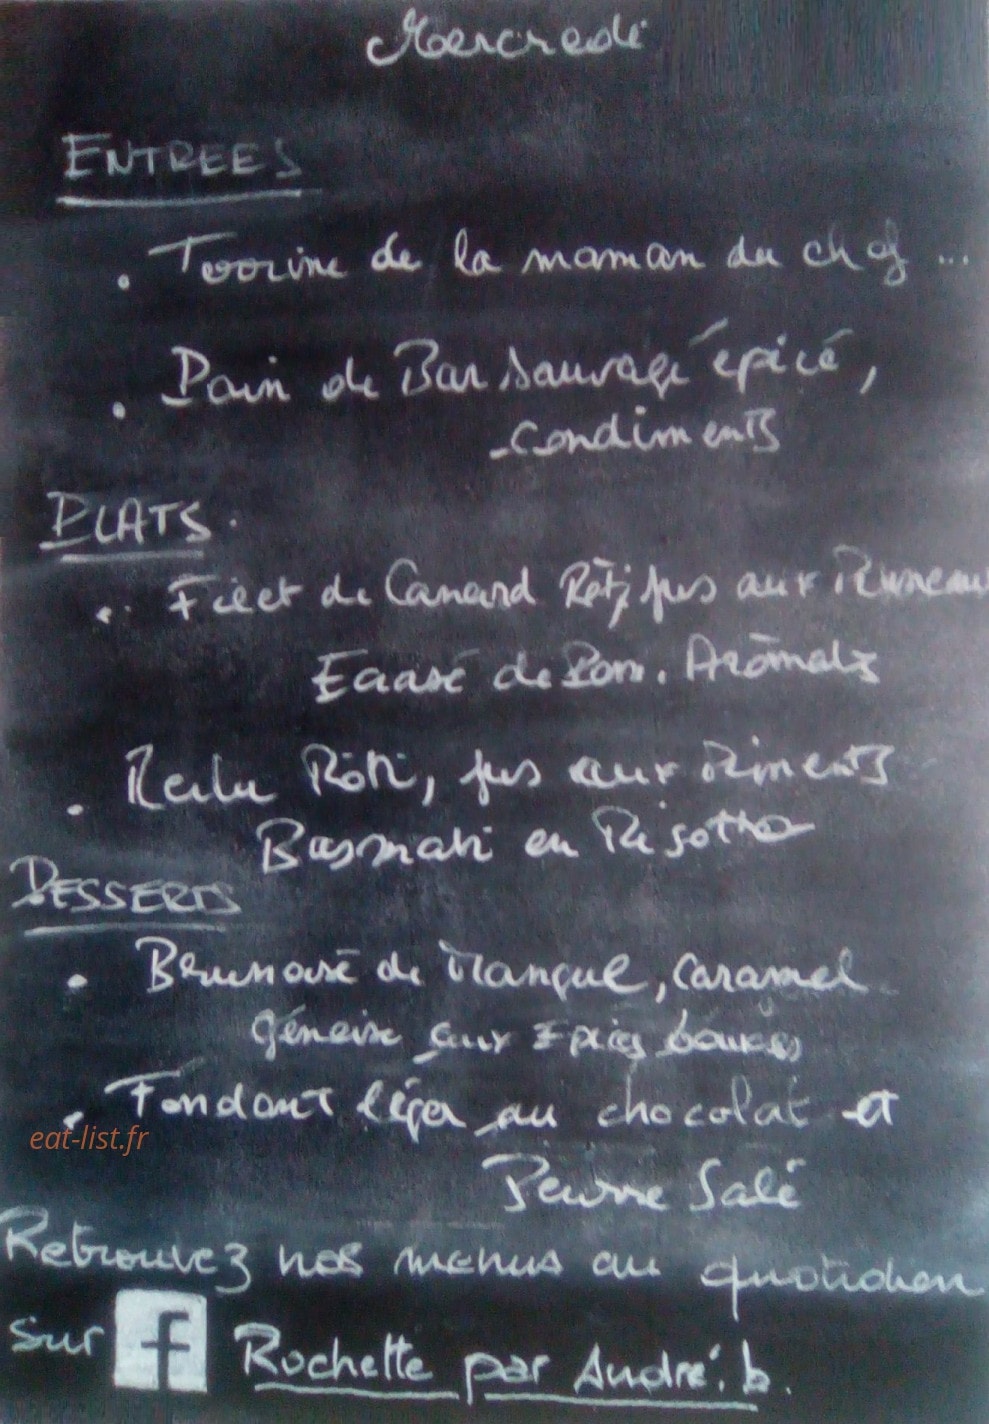 Mercredi
ENTREES
• Terrine de la maman du chef ...
• Pain de Bar sauvage épicé,
condiments
PLATS.
• Filet de Canard Rôti, jus aux Pruneaux
Ecrasé de Pom. Arômats
• Merlu Rôti, jus aux Piments
Basmati en Risotto
DESSERTS
• Brunoise de Mangue, Caramel
Génoise aux Epices douces
• Fondant léger au chocolat et
Beurre Salé
eat-list.fr
Retrouvez nos menus au quotidien
sur f Rochette par André. b.